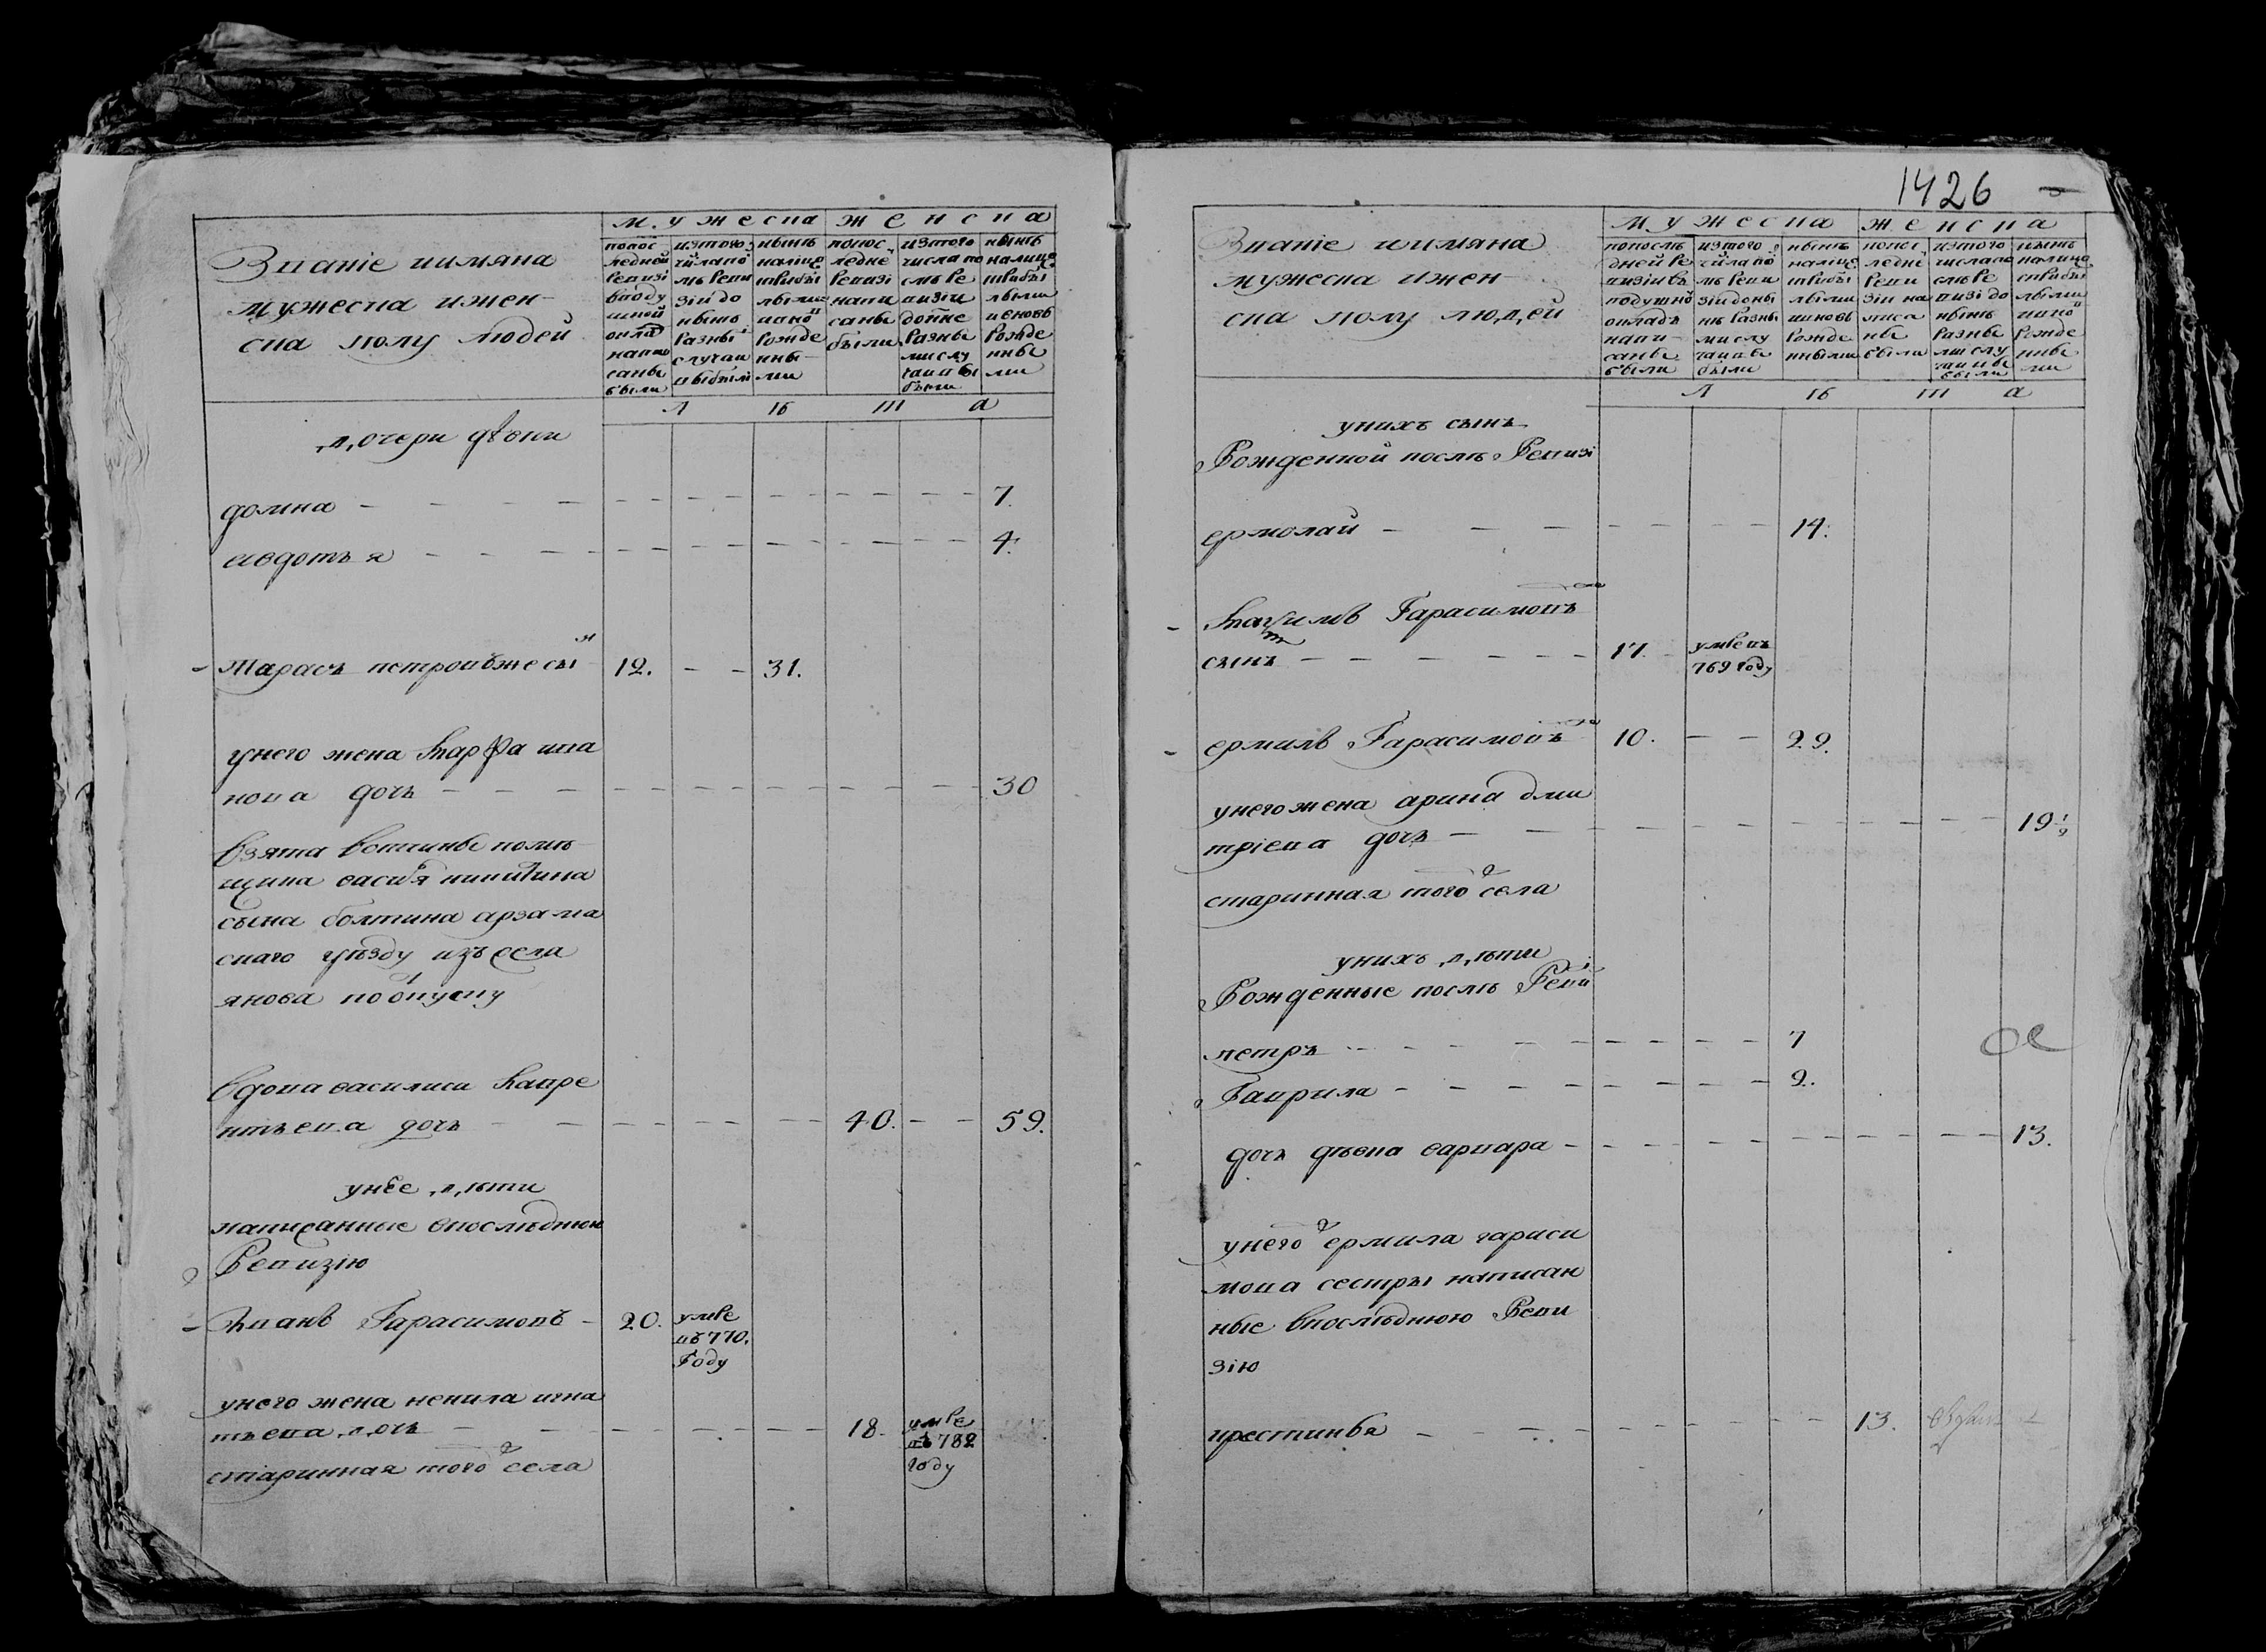 Званіе иимяна
мужеска ижен
ска полу людей
мужеска женска
попос
ледней
ревизі
вподу
шной
окла
напи
саны
были
изтого
числапо
слѣ реви
зіи до
нынѣ
разны
случаи
выбыли
нынѣ
налице
прибы
лыми
ивно
рожде
нны
ми
попос
ледне
ревизі
напи
саны
были
изтого
числа по
слѣ ре
визіи
доныне
разны
ми слу
чаи вы
были
нынѣ
налице
прибы
лыми
ивновь
рожде
нны
ми
лѣта
дочери дѣвки
домна 7.
авдотья 4.
Тарасъ петровъжесы н 12. 31.
унего жена марфа ива
нова дочь 30
Взята вотчины помѣ
щика василя никитина
сына болтина арзама
скаго уѣзду изъ села
янова поотпуску
Вдова василиса лавре
нтьева дочь 40. 59.
унее дѣти
написанные впослѣднюю
Ревизію
Иванъ Гарасимовъ 20. умре
въ770.
Году
унего жена ненила игна
тьева дочь 18. умре
въ782
году
старинная того села
1426
Званіе иимяна
мужеска ижен
ска полу людей
мужеска женска
попослѣ
дней ре
визіи въ
подушно
окладъ
напи
саны
были
изтого
числапо
слѣ реви
зіи доны
нѣ разны
ми слу
чаи вы
были
нынѣ
налице
прибы
лыми
ивновь
рожде
нными
попос
ледне
реви
зіи на
писа
ны
были
изтого
числапо
слѣ ре
визі до
нынѣ
разны
ми слу
чаи вы
были
нынѣ
налице
прибы
лыми
ивно
рожде
нны
ми
лѣта
унихъ сынъ
Рожденной послѣ Ревизі
ермолай 14.
Гарасимовъ
сынъ 17. умревъ
769 году
ермилъ Гарасимовъ 10. 29.
унего жена арина дми
тріева дочь 19 1/2
старинная того села
унихъ дѣти
Рожденные послѣ Реви
петръ 7
Гаврила 9.
дочь дѣвка варвара 13.
унего ермила гараси
мова сестры написан
ные впослѣднюю Реви
зію
крестинья 13.